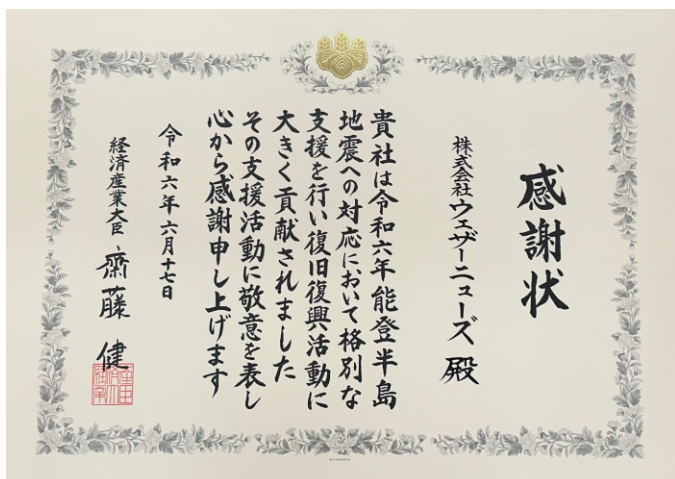 感謝状
株式会社ウェザーニューズ 殿
貴社は令和六年能登半島
地震への対応において格別な
支援を行い復旧復興活動に
大きく貢献されました
その支援活動に敬意を表し
心から感謝申し上げます
令和六年六月十七日
経済産業大臣 齋藤 健